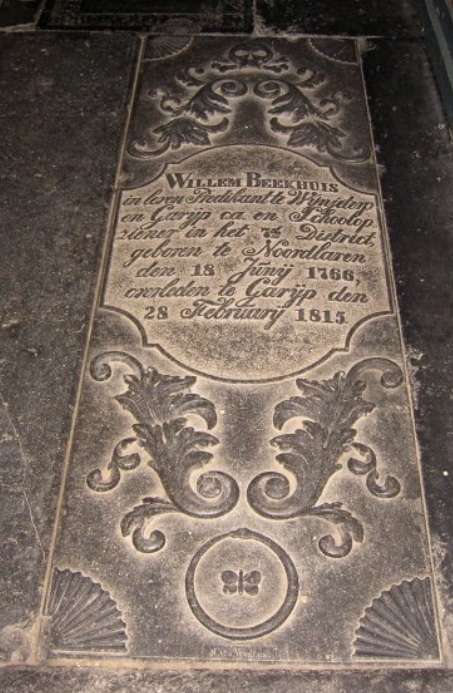 WILLEM BEEKHUIS
in leven Predikant te Wijnjeterp
en Garijp ca. en Schoolop
ziener in het 7de District,
geboren te Noordlaren
den 18 Junij 1766,
overleden te Garijp den
28 Februarij 1815.